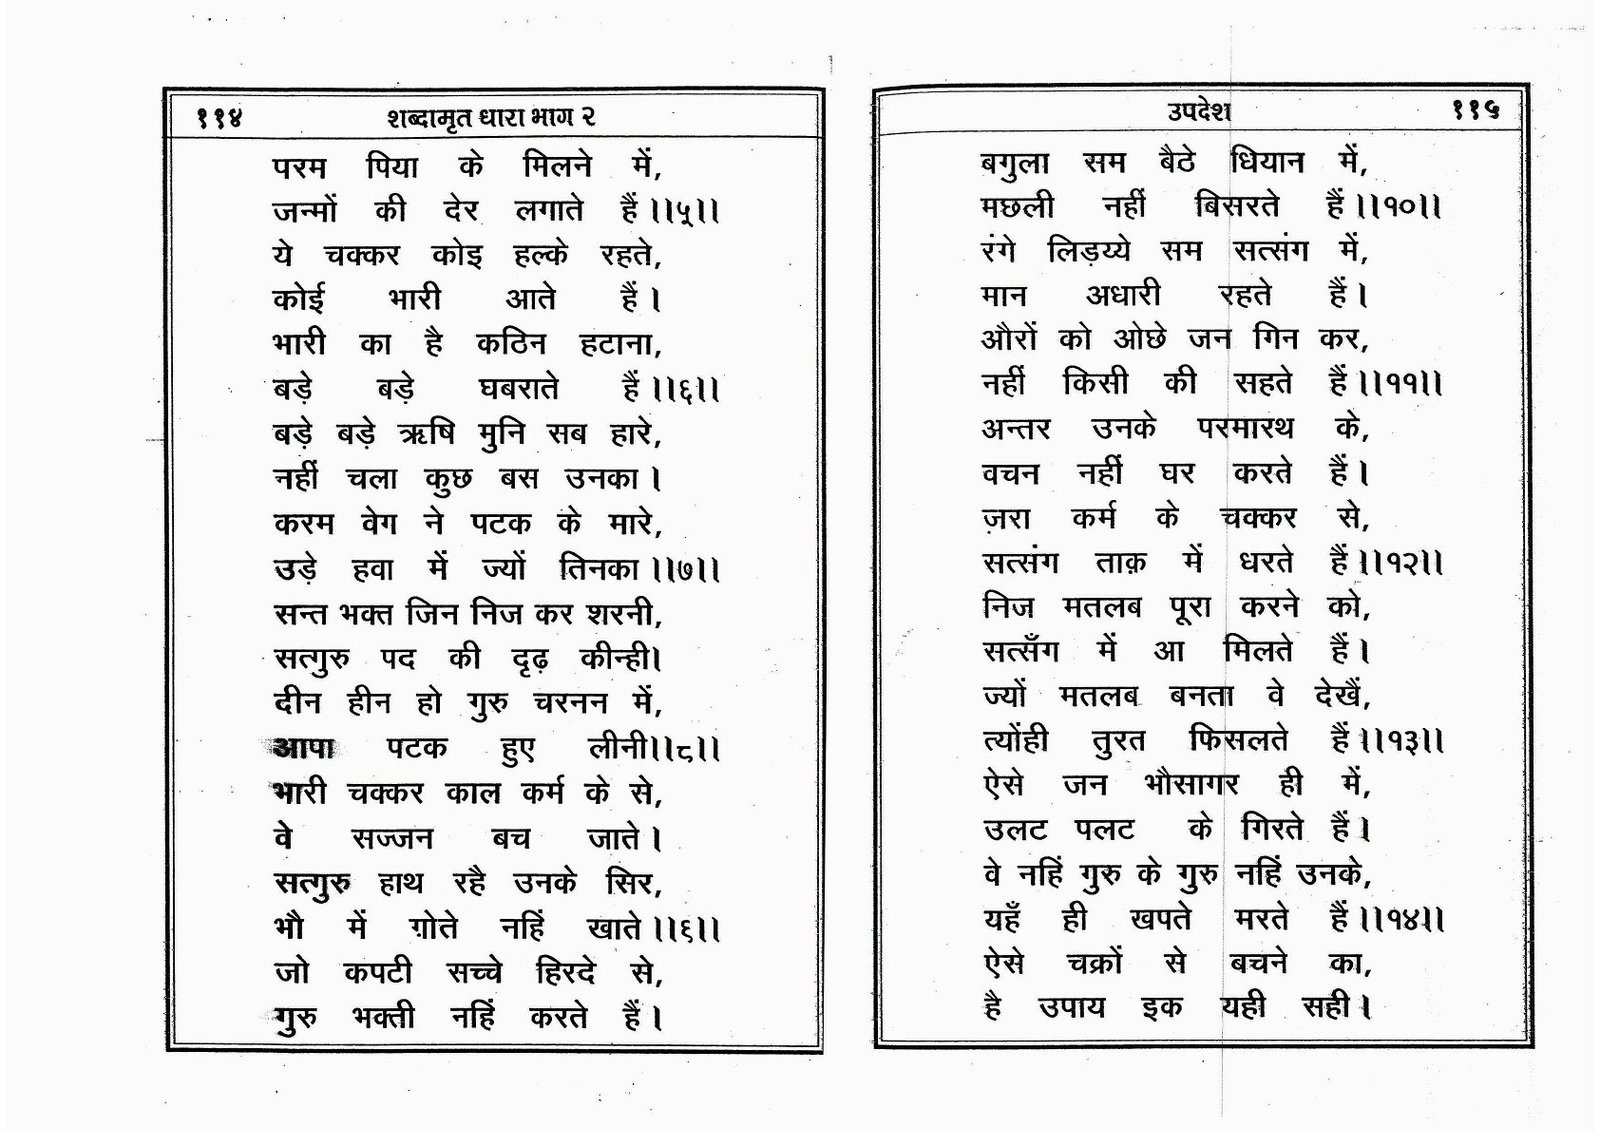 ११४ शब्दामृत धारा भाग २
परम पिया के मिलने में,
जन्मों की देर लगाते हैं।।५।।
ये चक्कर कोइ हल्के रहते,
कोई भारी आते हैं।
भारी का है कठिन हटाना,
बड़े बड़े घबराते हैं।।६।।
बड़े बड़े ऋषि मुनि सब हारे,
नहीं चला कुछ बस उनका।
करम वेग ने पटक के मारे,
उड़े हवा में ज्यों तिनका।।७।।
सन्त भक्त जिन निज कर शरनी,
सत्गुरु पद की दृढ़ कीन्ही।
दीन हीन हो गुरु चरनन में,
आपा पटक हुए लीनी।।८।।
भारी चक्कर काल कर्म के से,
वे सज्जन बच जाते।
सत्गुरु हाथ रहै उनके सिर,
भौ में ग़ोते नहिं खाते।।९।।
जो कपटी सच्चे हिरदे से,
गुरु भक्ती नहिं करते हैं।
उपदेश ११५
बगुला सम बैठे धियान में,
मछली नहीं बिसरते हैं।।१०।।
रंगे लिड़य्ये सम सत्संग में,
मान अधारी रहते हैं।
औरों को ओछे जन गिन कर,
नहीं किसी की सहते हैं।।११।।
अन्तर उनके परमारथ के,
वचन नहीं घर करते हैं।
ज़रा कर्म के चक्कर से,
सत्संग ताक़ में धरते हैं।।१२।।
निज मतलब पूरा करने को,
सत्सँग में आ मिलते हैं।
ज्यों मतलब बनता वे देखैं,
त्योंही तुरत फिसलते हैं।।१३।।
ऐसे जन भौसागर ही में,
उलट पलट के गिरते हैं।
वे नहिं गुरु के गुरु नहिं उनके,
यहँ ही खपते मरते हैं।।१४।।
ऐसे चक्रों से बचने का,
है उपाय इक यही सही।